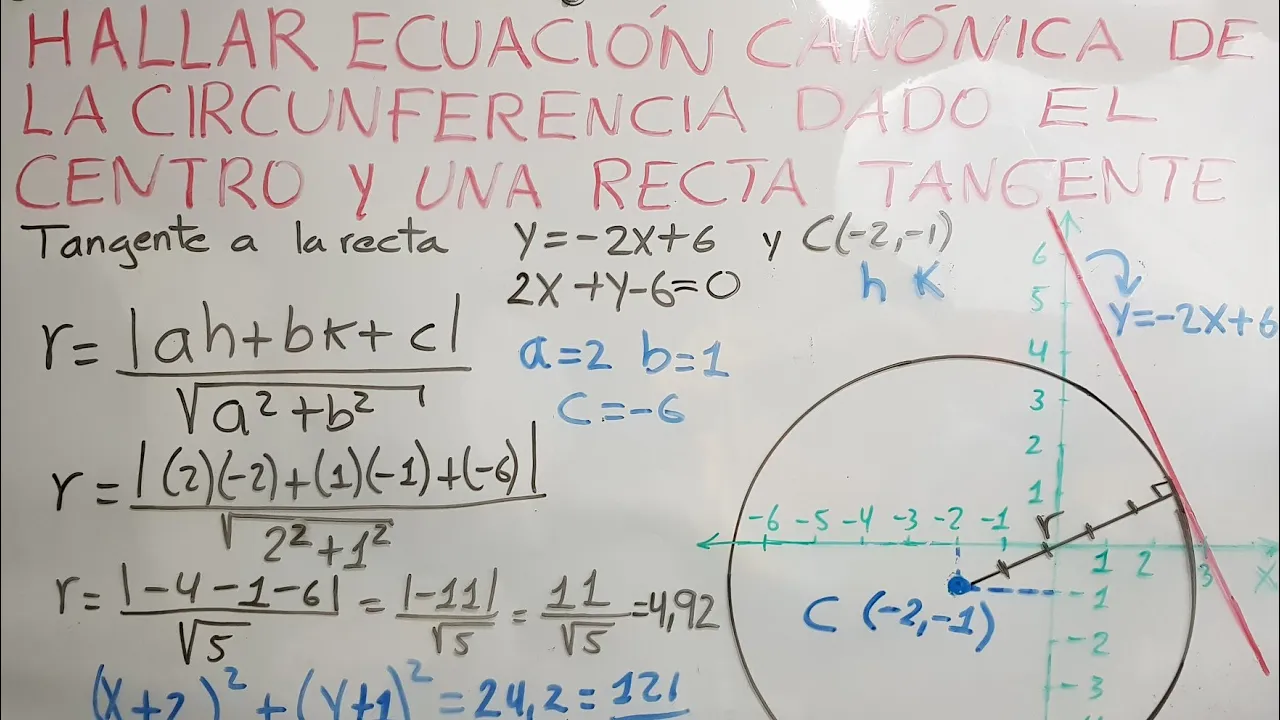 HALLAR ECUACIÓN CANÓNICA DE
LA CIRCUNFERENCIA DADO EL
CENTRO Y UNA RECTA TANGENTE
Tangente a la recta y=-2x+6 y C(-2,-1)
2x+y-6=0 h K
r=|ah+bk+c|/√a²+b²
a=2 b=1
c=-6
r=|(2)(-2)+(1)(-1)+(-6)|/√2²+1²
r=|-4-1-6|/√5=|-11|/√5=11/√5=4,92
(x+2)²+(y+1)²=24,2=121
6
5
4
3
2
1
y=-2x+6
-6 -5 -4 -3 -2 -1 r
1 2 3 X
C (-2,-1)
-1
-2
-3